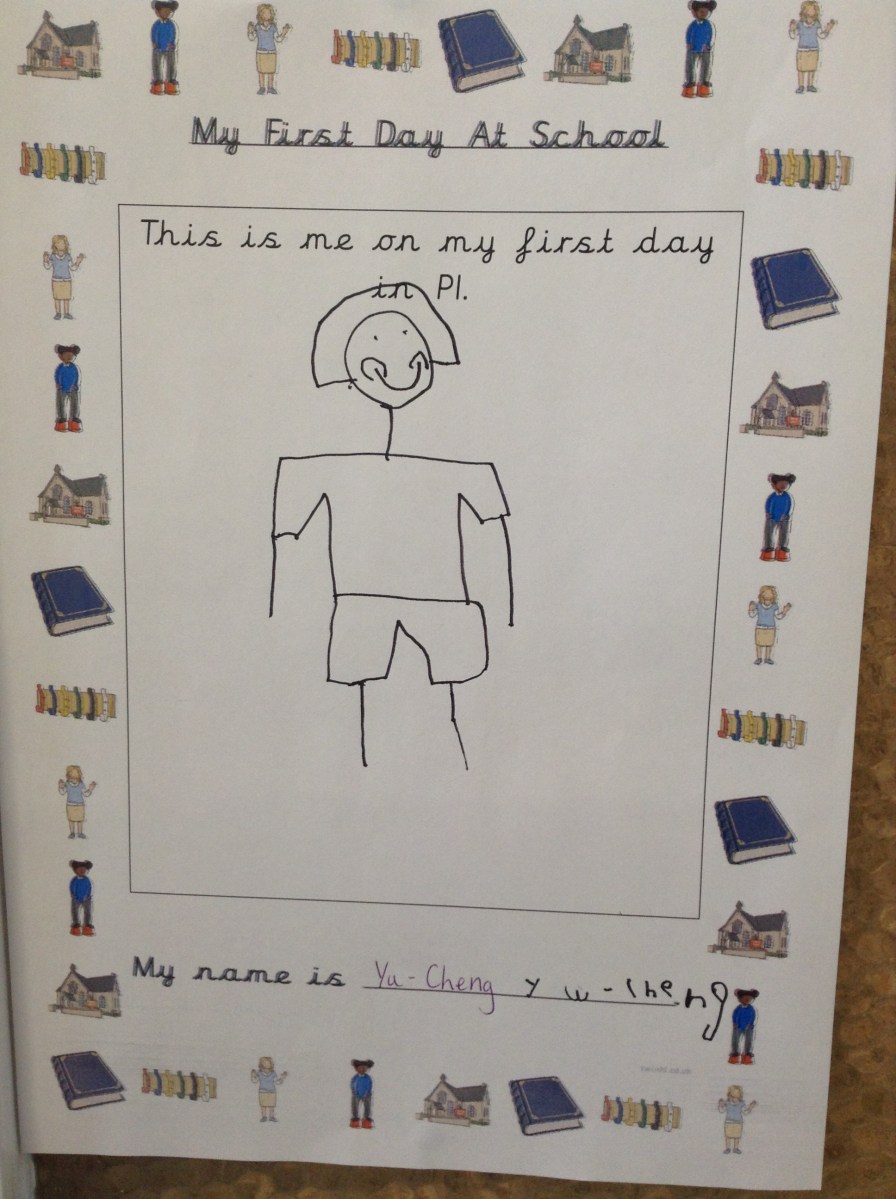 My First Day At School
This is me on my first day
in P1.
My name is Yu-Cheng Yu-Cheng
twinkl.co.uk